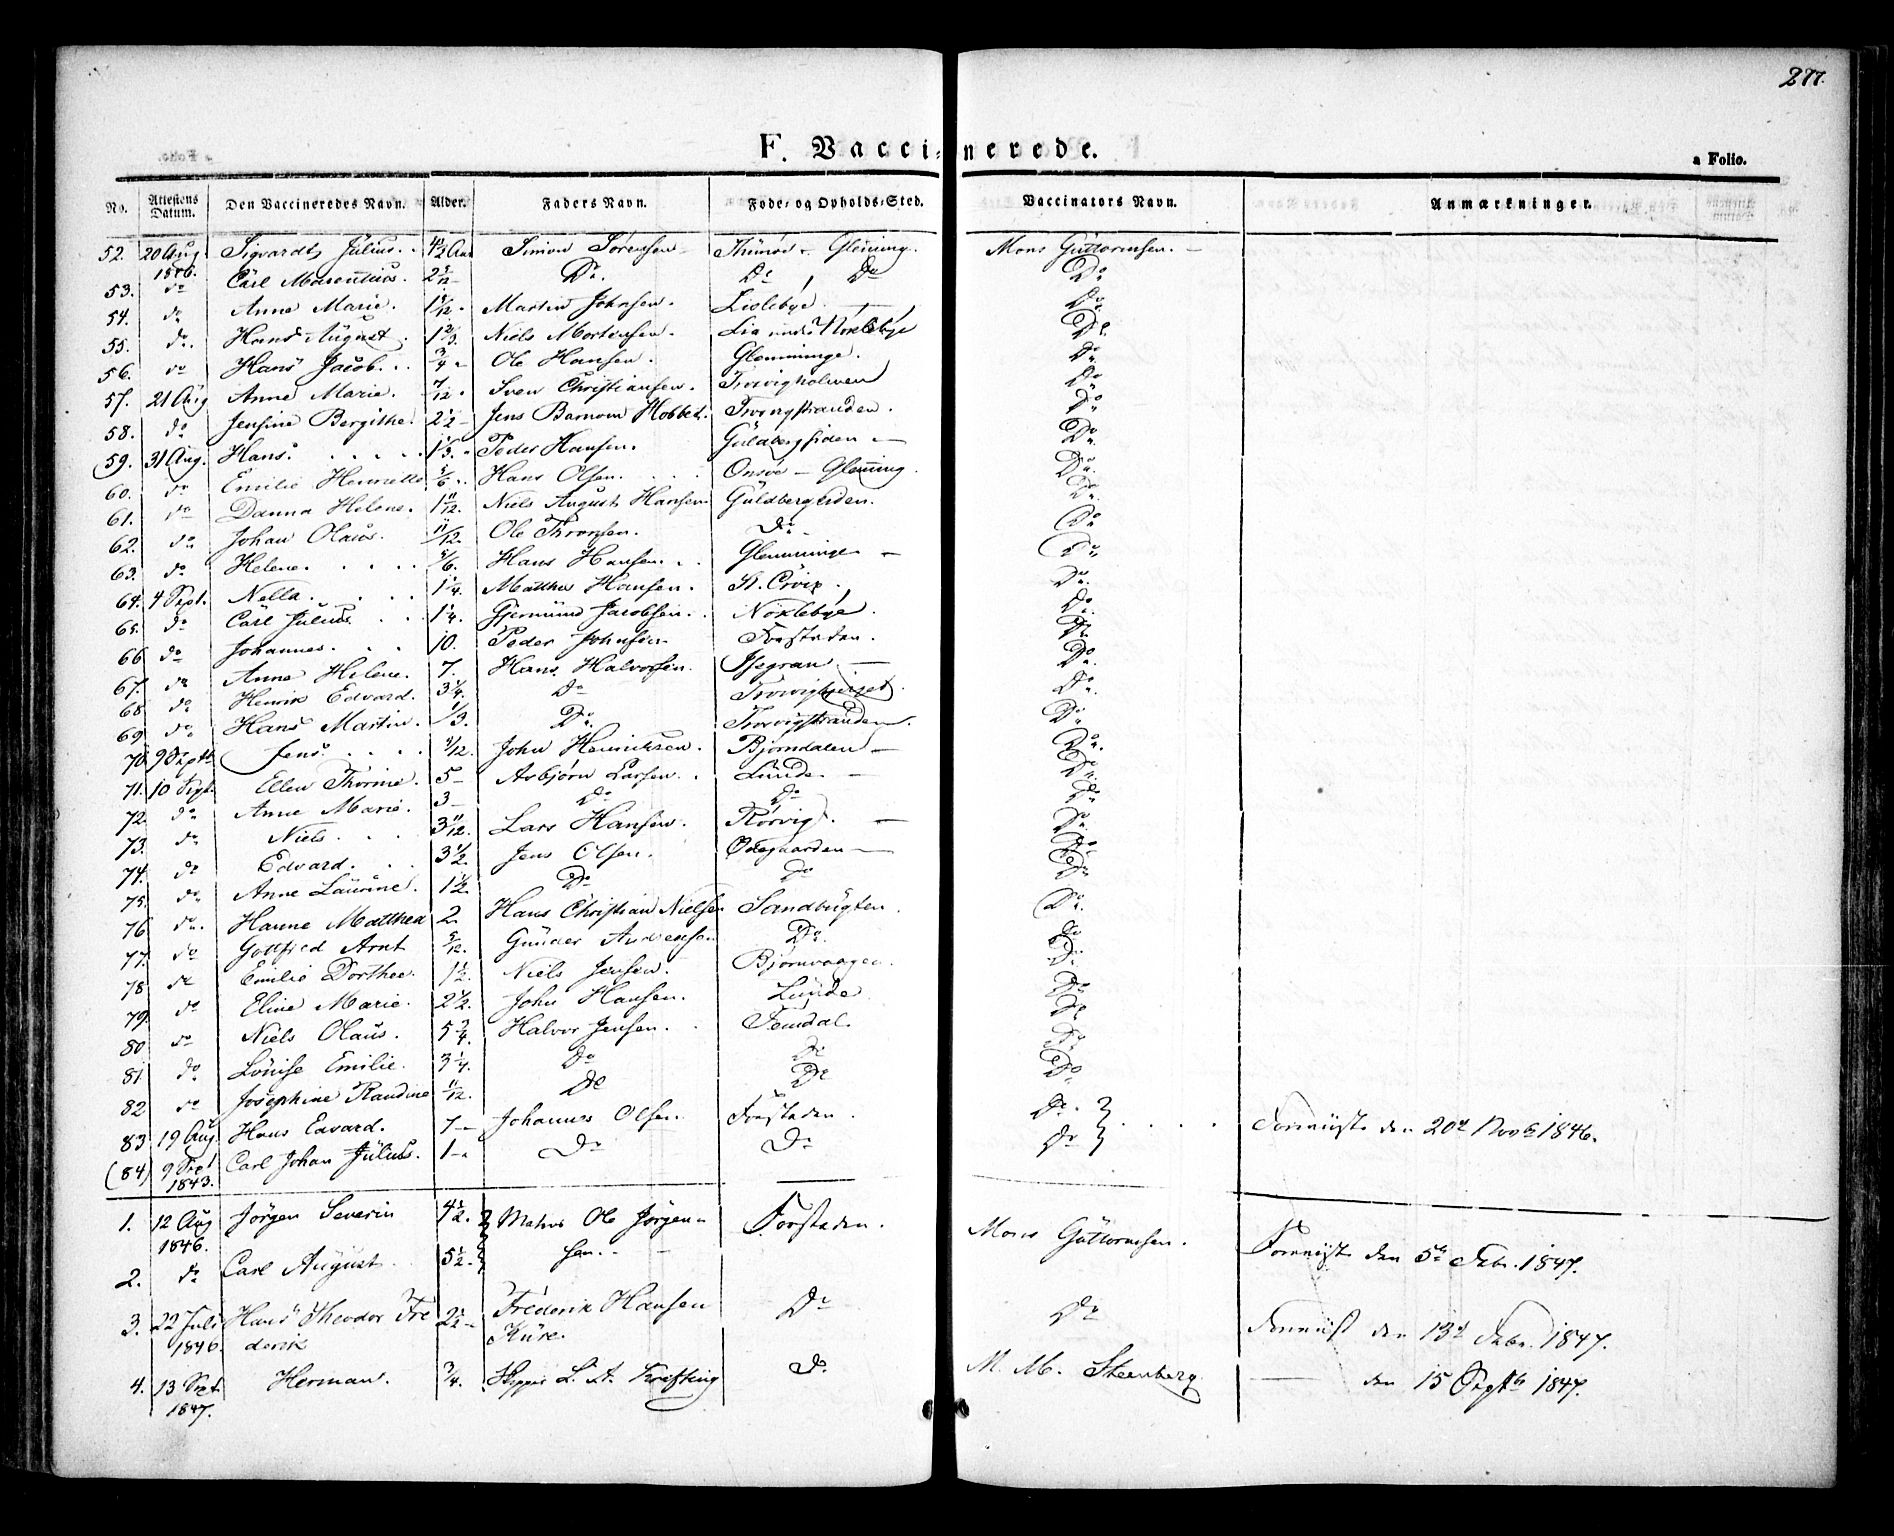 277.
F. Vaccinerede.
a Folio.
No. Attestens Datum. Den Vaccineredes Navn. Alder. Faders Navn. Føde- og Opholds-Sted. Vaccinators Navn. Anmærkninger.
52. 20 Aug 1846. Sigvardt Julius. 4 1/2 Aar Simon Sörensen Thunöe - Glemming. Mons Guttormsen.
53. do Carl Marentius. Do. Do Do Do
54. do Anne Marie. Martin Johnsen. Lislebye. Do
55. do. Hans August. 1 2/3. Niels Mortensen. Lia under Noklebye Do
56. do Hans Jacob. 3/4 Ole Hansen. Glemminge. Do
57. 21 Aug Anne Marie. 7/12 Sven Christiansen. Do
58. do Jensine Bergithe. 2 1/2 Jens Do
(59. 31 Aug. Hans. 1 1/3. Peder Hansen. Guldbergsiden Do
60. do Emilie Henriette 5/6 Hans Olsen. Onsöe - Glemming. Do
61. do Danna Helene. 1 11/12. Niels August Hansen Guldbergsiden. Do
62. do Johan Olaus. 11/12. Ole Thronsen. Do Do
63. do Helene. 5/6. Hans Hansen. Glemminge Do
64. 4 Sept. Nella. 1 1/4. Matthis Hansen. St. Croix, Do
65. do Carl Julius. 1 1/4. Gjermund Jacobsen. Noklebye. Do
66 do Johannes. 10. Peder Johnsen Forstaden. Do
67. do Anne Helene. 7. Hans Halvorsen. Isegran Do
68 do Henrik Edvard. 3 1/4. Do Do
69 do Hans Martin. 1/3. Do. Trorvigstranden. Do
70. 9 Septb Jens. John Henriksen. Bjorndalen Do.
71. 10 Sept. Ellen Thorine. 5 Asbjörn Larsen. Lunde. Do
72. do Anne Marie. 3 Do Do Do
73. do Niels. 3 11/12. Lars Hansen. Rörvig. Do
74. do Edvard. 3 1/2. Jens Olsen. Ødegaarden Do
75. do Anne Laurine. 1 1/2. Do Do Do
76. do. Hanne Matthea 2. Hans Christian Nielsen Sandbugten. Do
77. do Gottfried Arnt 5/12. Gunder Andersen Do. Do
78 do Emilie Dorthee. 1 1/2. Niels Jensen. Bjornevaagen. Do
79. do Eline Marie. 2 1/2. John Hansen. Lunde Do
80 do Niels Olaus. 5 3/4. Halvor Jensen. Do
81. do Lovise Emilie. 3 1/4. Do Do Do
82 do Josephine Randine 11/12. Do Do Do
83 19 Aug Hans Edvard. 7 Johannes Olsen. Forstaden. Do Fornyist den 20de Novb 1846.
(84) 9 Sept 1843. Carl Johan Julius. 1 Do Do Do
1. 12 Aug 1846. Jörgen Severin 4 1/2. Ole Jörgen- Forstaden. Mons Guttormsen. Fornyist den 5te Febr. 1847.
2. do Carl August 5 1/2. sen.
3. 22 Juli 1846. Hans Theodor Fre 2 1/2 Frederik Hansen Do Do Fornyist den 13de Febr. 1847.
derik Kure.
4. 13 Sept 1847. Herman. 3/4. Skipper L. A. Krefting Do M. M. Steenberg. den 15 Septb 1847.